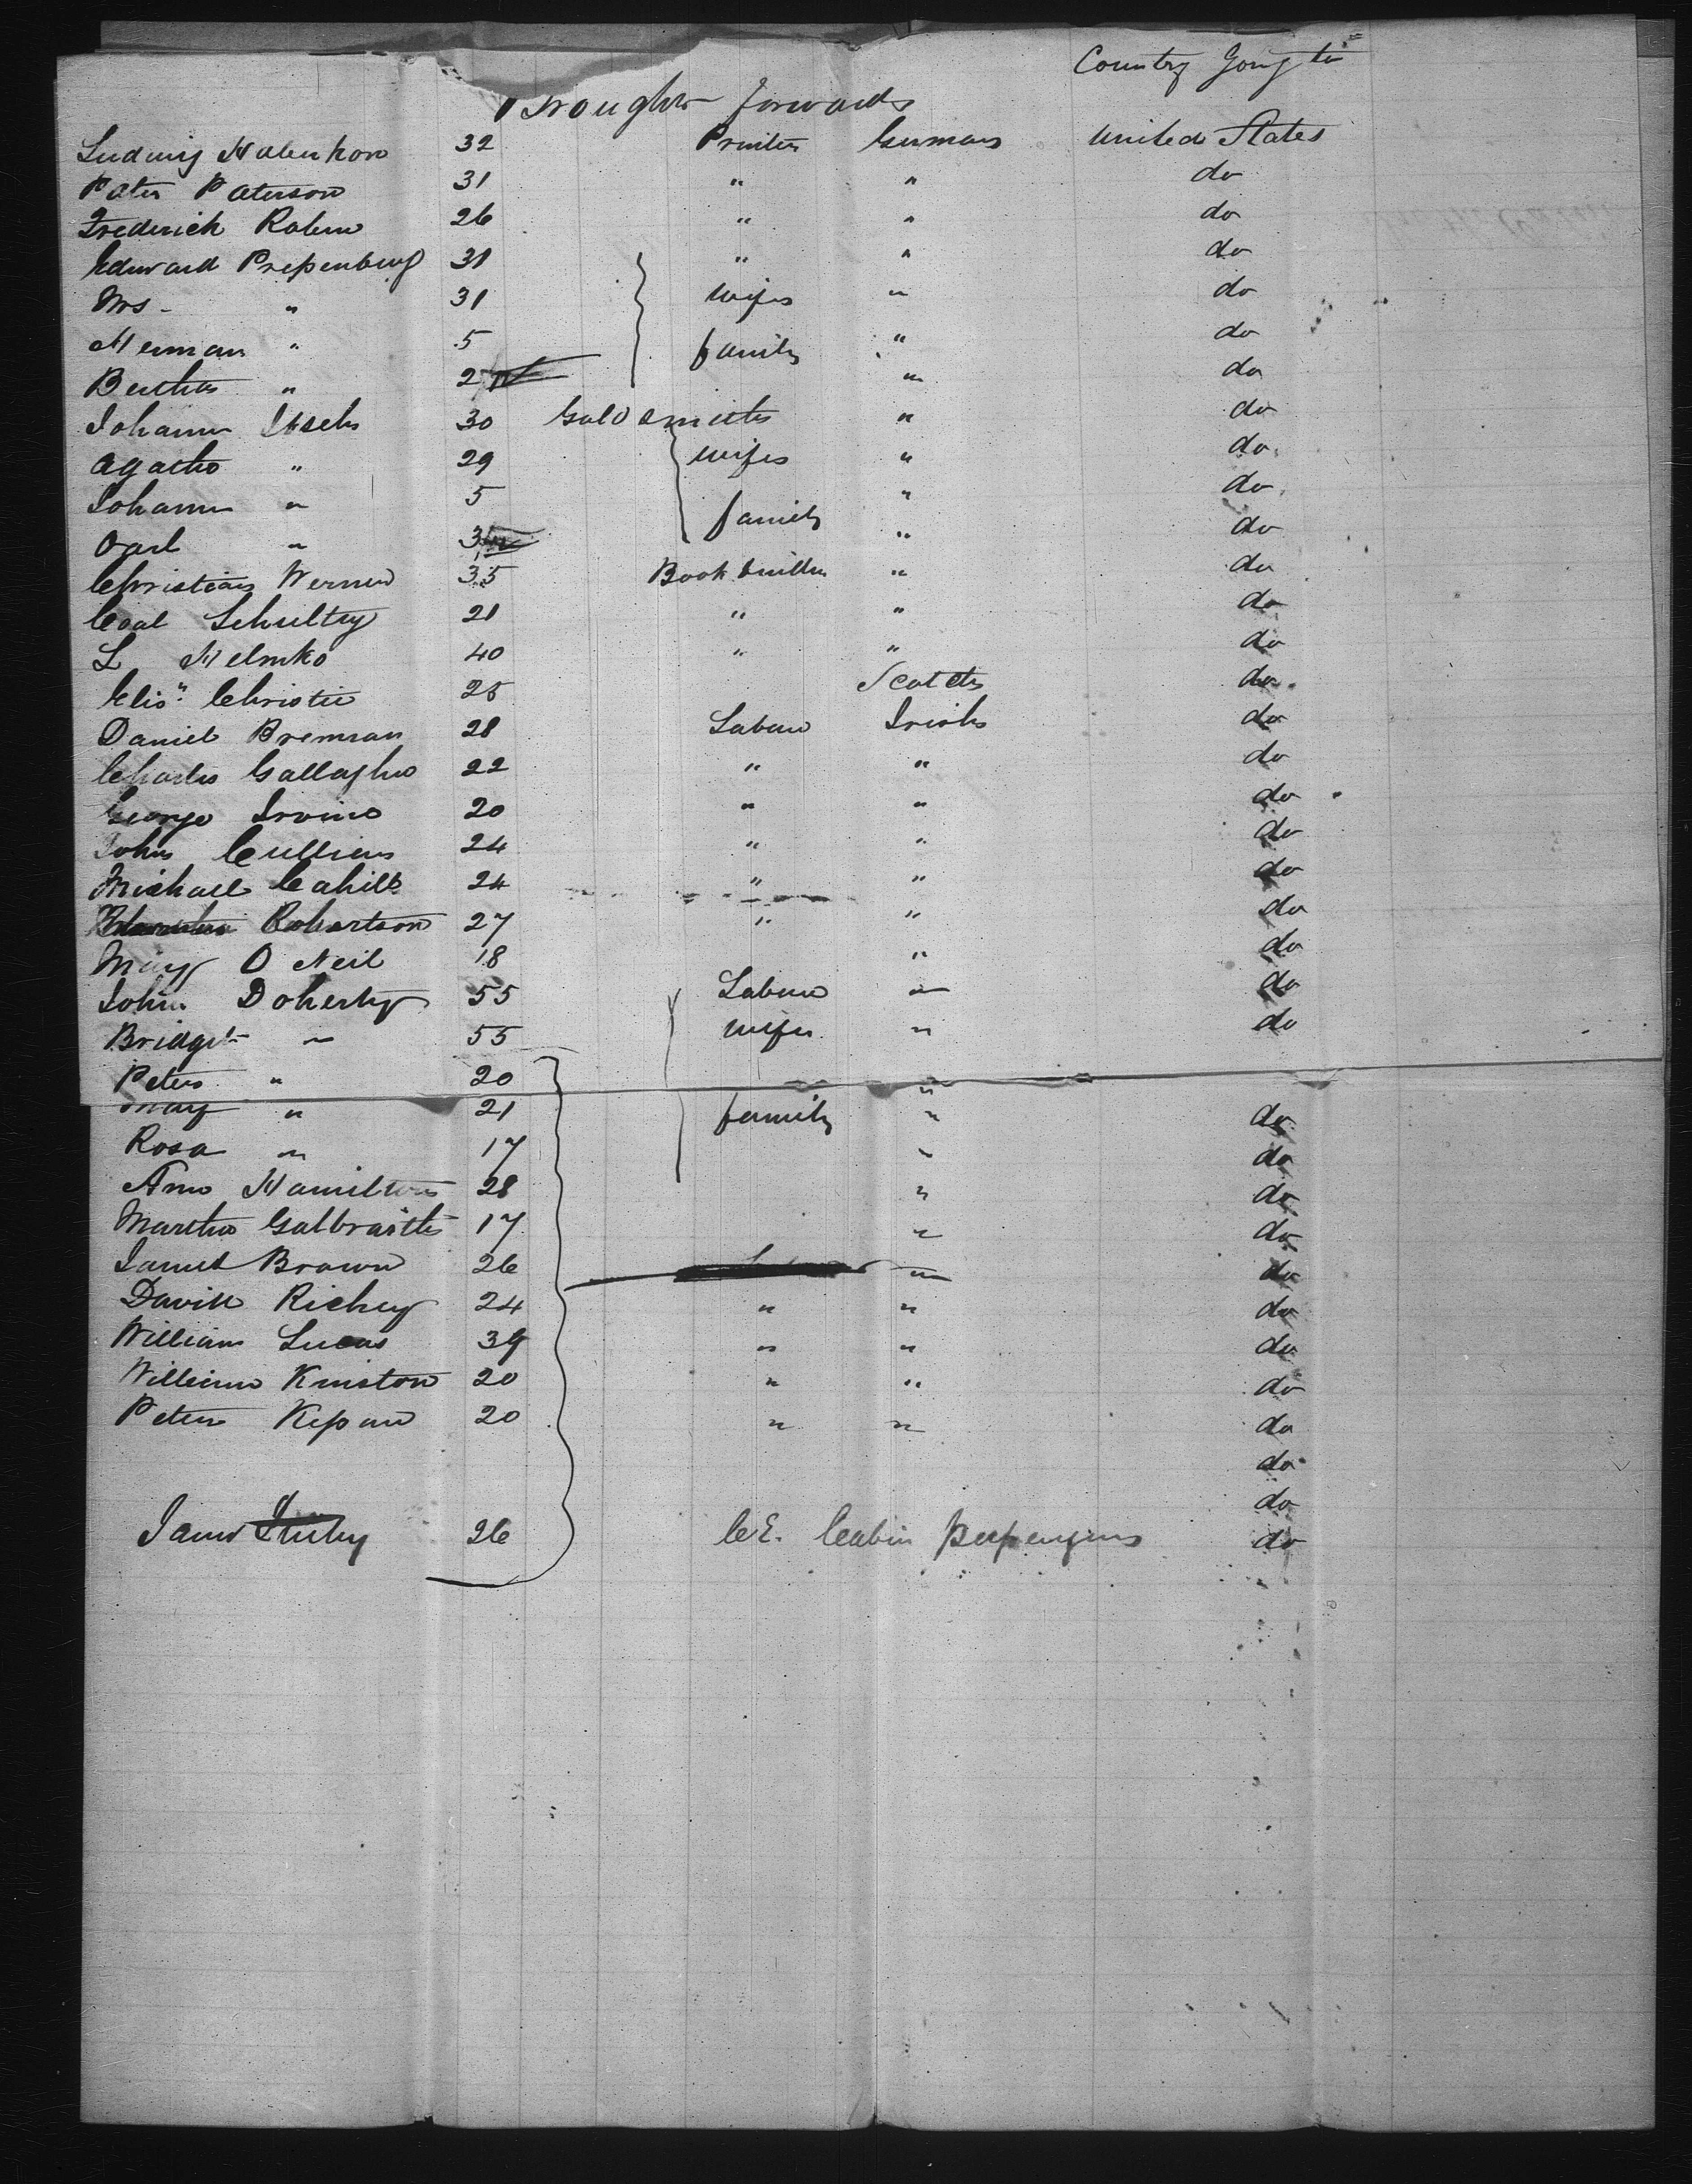 Country Going to
Brought forward
Ludwig Habenkon 32 Printer German United States
Peter Paterson 31 " " do
Frederick Rohm 26 " " do
Edward 31 " " do
Mrs " 31 wife " do
Herman " 5 family " do
Bertha " 2 " do
Johann 30 Goldsmith " do
Agatha " 29 wife " do
Johann " 5 family " do
Carl " 3 " do
Christian Werner 35 Book binder " do
Carl Schultz 21 " " do
L Helmko 40 " " do
Elis. Christie 25 Scotch do
Daniel Brennan 28 Labour Irish do
Charles Gallagher 22 " " do
George Irvine 20 " " do
John Cullien 24 " " do
Michael Cahill 24 " " do
Robertson 27 " " do
Mary O Neil 18 " do
John Doherty 55 Labour " do
Bridget " 55 wife " do
Peter " 20 "
Mary " 21 family " do
Rosa " 17 " do
Ann Hamilton 28 " do
Martha Galbraith 17 " do
Brown 26 " do
David Richey 24 " " do
William Lucas 39 " " do
William Kinston 20 " " do
Peter 20 " " do
do
do
James 26 Cabin Passengers do